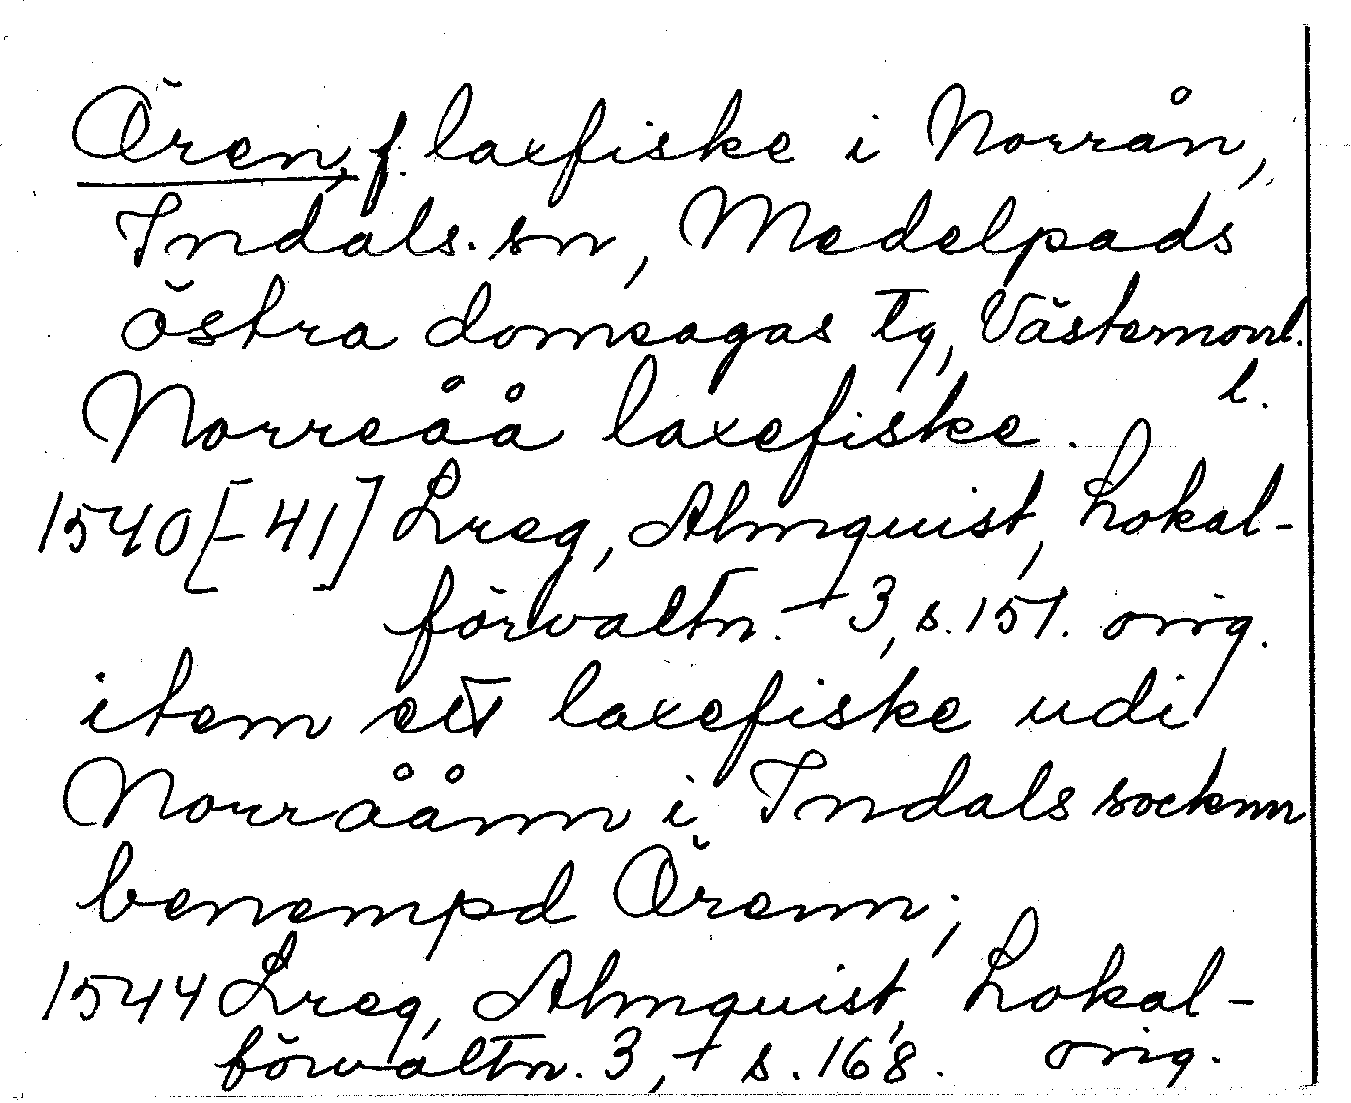 Ören, f. laxfiske i Norrån,
Indals. sn, Medelpads
östra domsagas tg, Västernorrl.
l.
Norreåå laxefiske.
1540[-41] Lreg, Almquist, Lokal-
förvaltn. + 3, s. 151. orig.
item ett laxefiske udi
Norråånn i Indals socknn
benempd Örenn;
1544 Lreg, Almquist, Lokal-
förvaltn. 3, + s. 168. orig.